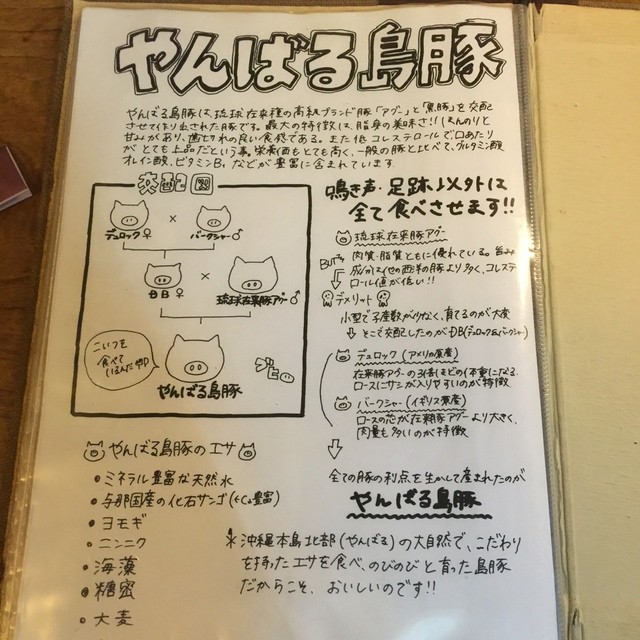 やんばる島豚
やんばる島豚は、琉球在来種の高級ブランド豚「アグー」と「黒豚」を交配
させて作り出された豚です。最大の特徴は、脂身の美味さ!!ほんのりと
甘みがあり、歯切れの良い食感である。また低コレステロールで口あたり
がとても上品だという事。栄養価もとても高く、一般の豚と比べて、グルタミン酸
オレイン酸、ビタミンB1などが豊富に含まれています。
交配図
デュロック♀ × バークシャー♂
DB♀ × 琉球在来豚アグー♂
こいつを
食べて
いるんだ
ブヒ
やんばる島豚
やんばる島豚のエサ
・ミネラル豊富な天然水
・与那国産の化石サンゴ(+Ca豊富)
・ヨモギ
・ニンニク
・海藻
・糖蜜
・大麦
鳴き声・足跡以外は
全て食べさせます!!
琉球在来豚アグー
肉質・脂質ともに優れている。旨み
成分は他の西洋の豚より多く、コレステ
ロール値が低い!!
BUT
デメリット
小型で子産数が少なく、育てるのが大変
→そこで交配したのがDB(デュロック&バークシャー)
デュロック(アメリカ原産)
在来豚アグーの3倍ほどの体重になる。
ロースにサシが入りやすいのが特徴
バークシャー(イギリス原産)
ロースの芯が在来豚アグーより大きく、
肉量も多いのが特徴
全ての豚の利点を生かして産まれたのが
やんばる島豚
※沖縄本島北部(やんばる)の大自然で、こだわり
を持ったエサを食べ、のびのびと育った島豚
だからこそ、おいしいのです!!